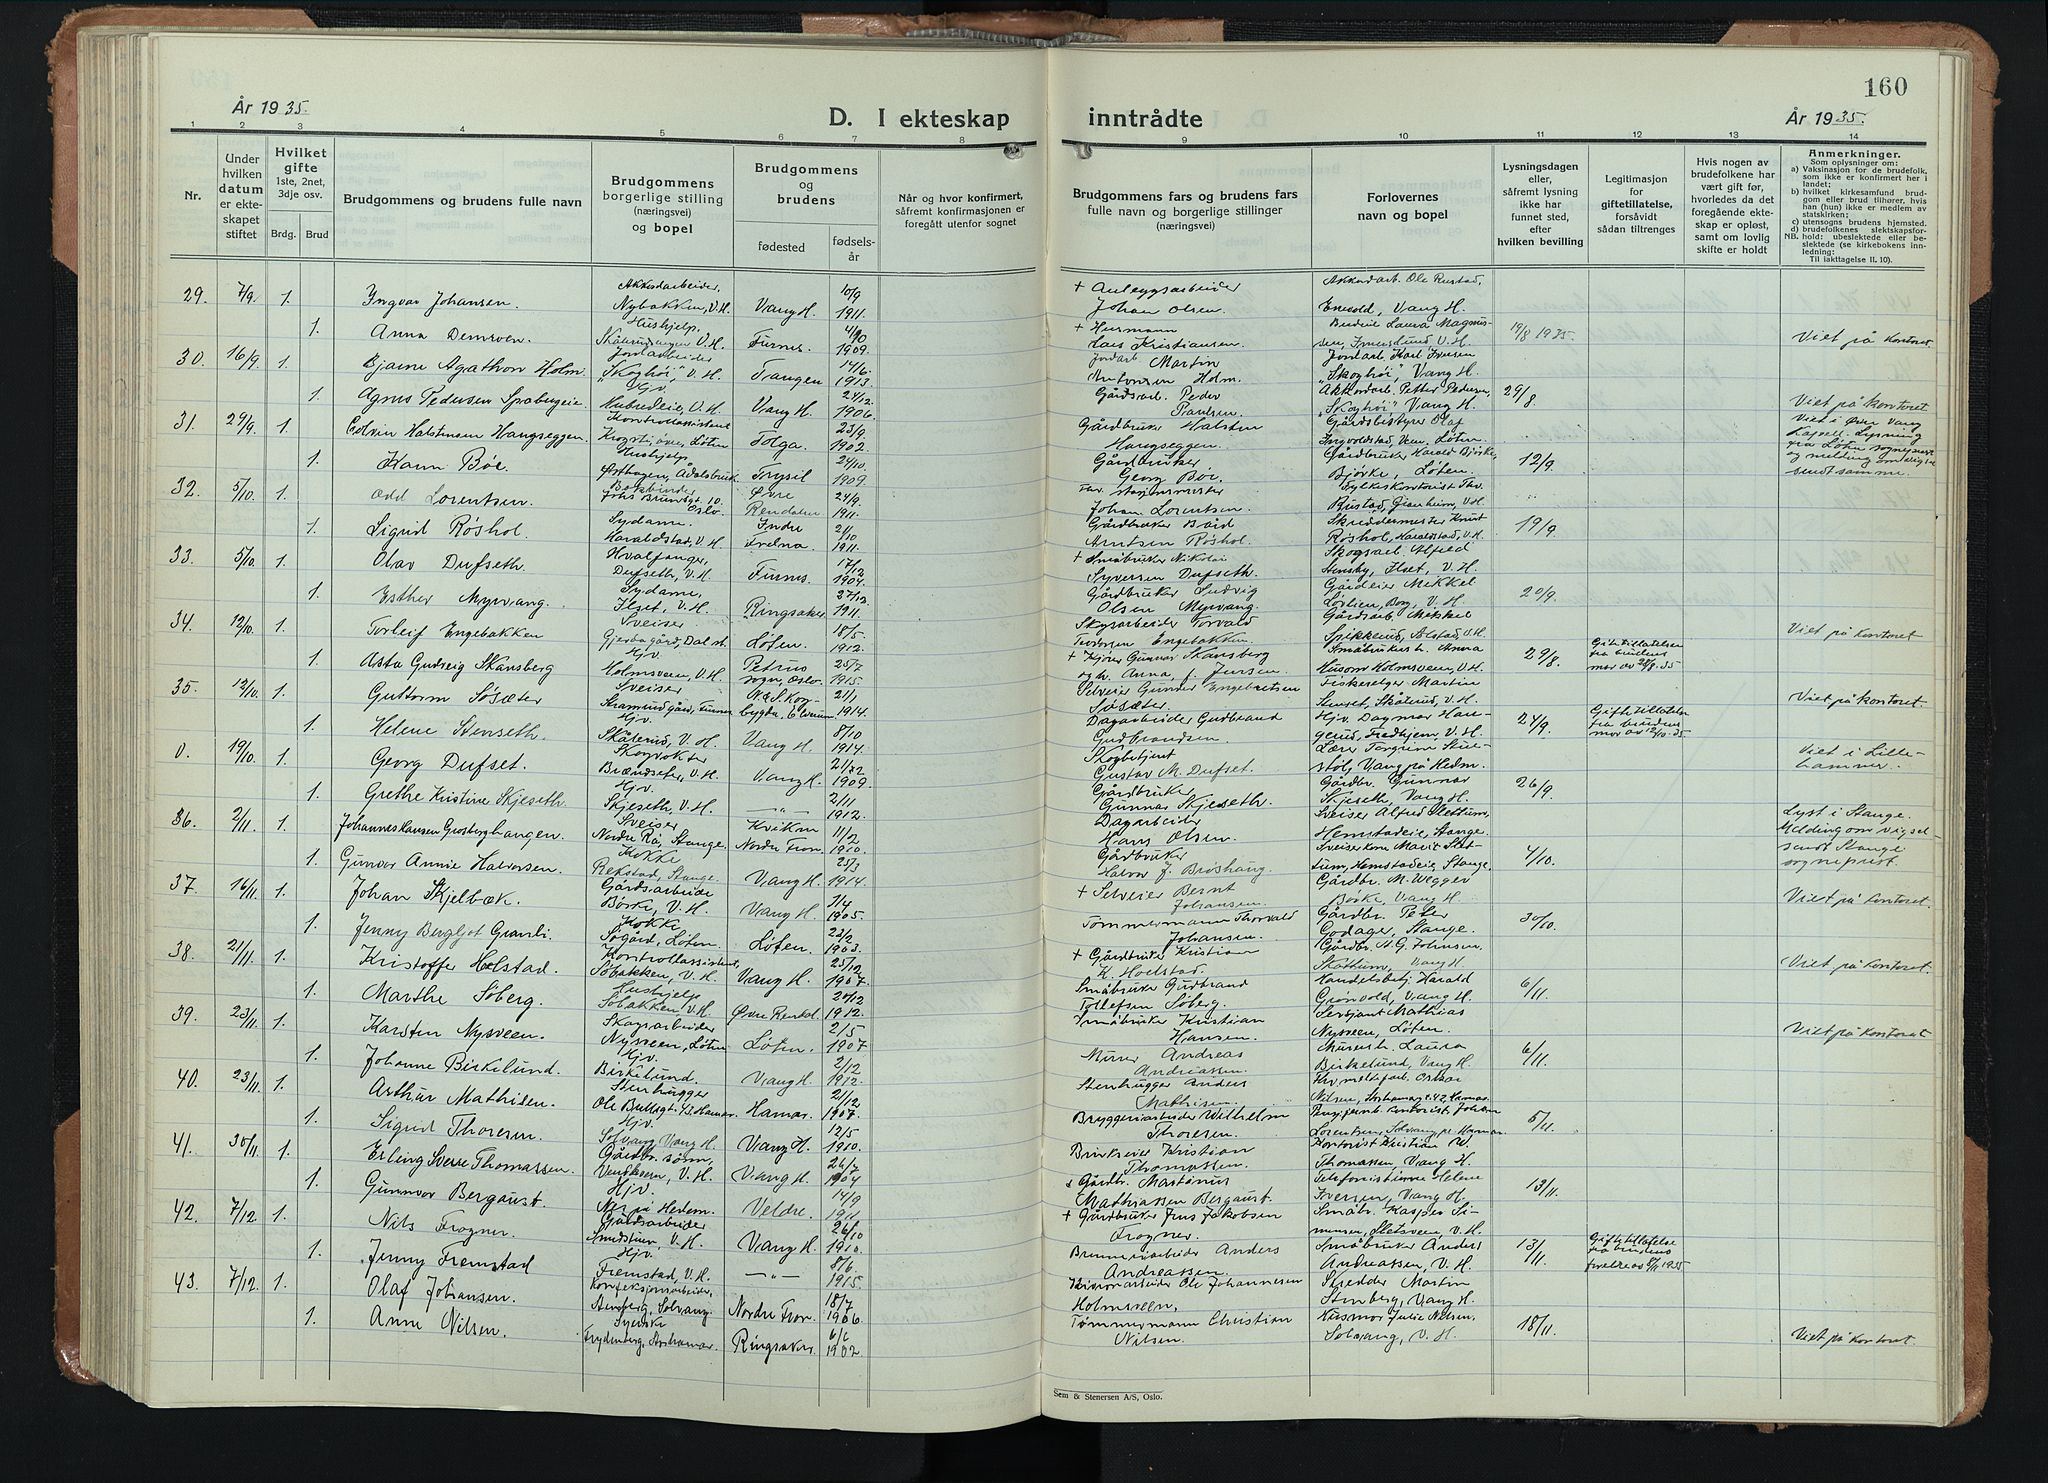 160
År 1935.
D. I ekteskap inntrådte
År 1935.
1 2 3 4 5 6 7 8 9 10 11 12 13 14
Nr.
Under hvilken datum er ekteskapet stiftet
Hvilket gifte 1ste, 2net, 3dje osv.
Brdg. Brud
Brudgommens og brudens fulle navn
Brudgommens borgerlige stilling (næringsvei) og bopel
Brudgommens og brudens
fødested
fødselsår
Når og hvor konfirmert, såfremt konfirmasjonen er foregått utenfor sognet
Brudgommens fars og brudens fars fulle navn og borgerlige stillinger (næringsvei)
Forlovernes navn og bopel
Lysningsdagen eller, såfremt lysning ikke har funnet sted, efter hvilken bevilling
Legitimasjon for giftetillatelse, forsåvidt sådan tiltrenges
Hvis nogen av brudefolkene har vært gift før, hvorledes da det foregående ekteskap er opløst, samt om lovlig skifte er holdt
Anmerkninger.
Som oplysninger om:
a) Vaksinasjon for de brudefolk, som ikke er konfirmert her i landet;
b) hvilket kirkesamfund brudgom eller brud tilhører, hvis han (hun) ikke er medlem av statskirken;
c) utensogns brudens hjemsted.
d) brudefolkenes slektskapsforhold: ubeslektede eller beslektede (se kirkebokens innledning:
NB.
Til iakttagelse II. 10).
29. 7/9. 1. Yngvar Johansen. Akkordarbeider, Nybakken, V. H. Vang H. 10/9 1911. + Anleggsarbeider Johan Olsen. Akkordarb. Ole Rustad, Enevold, Vang H.
1. Anna Hushjelp. V. H. Furnes. 1909. + Husmann Kristiansen. Budeie Laura Magnussen, V. H. 19/8 1935. Viet på kontoret.
30. 16/9. 1. Bjarne Agathon Holm. Jordarbeider "Skoghöi", V. H. Tangen 14/6. 1913. Jordarb. Martin Antonsen Holm. Jordarb. Karl Iversen "Skoghöi", Vang H.
1. Agnes Pedersen Hjv. V. H. Vang H. 24/12 1906. Gårdsarb. Peder Paulsen. Akkordarb. Petter Pedersen, "Skoghöi", Vang H. 29/8. Viet på kontoret.
31. 29/9. 1. Halstensen Hangseggen. Kontrollassistent Løten Tolga. 23/9. 1902. Gårdbruker Halsten Hangseggen. Gårdsbestyrer Olaf Ingvoldstad, Løten.
1. Bøe. Hushjelp, Ådalsbruk. Trysil 24/10. 1909. Gårdbruker Georg Bøe. Gårdbruker Harald Bjørke, Bjørke, Løten. 12/9. Viet i Øvre Vang Kapell. Lysning fra Løten sogneprest og melding om vigsel sendt samme.
32. 5/10. 1. Odd Lorentsen. Oslo. Øvre Rendalen 24/9. 1911. Johan Lorentsen. Fylkeskontorist V. H.
1. Sigrid Røshol. Sydame. Haraldstad, V. H. Indre 2/10 1911. Gårdbruker Bård Arntsen Røshol. Skreddermester Knut Røshol, Haraldstad, V. H. 19/9.
33. 5/10. 1. Olav Dufseth. Hvalfanger, Dufseth, V. H. Furnes. 17/12 1904. + Småbruker Nikolai Syversen Dufseth. Skogsarb. Alfred Stensby, Ilset, V. H.
1. Esther Myrvang. Sydame, Ilset, V. H. Ringsaker 27/12. 1911. Gårdbruker Ludvig Olsen Myrvang. Gårdeier Mikkel V. H. 20/9.
34. 12/10. 1. Torleif Engebakken Sveiser Løten. 18/5. 1912. Skogsarbeider Torvald Engebakken. Gårdsarb. V. H. Viet på kontoret
1. Asta Gudveig Skansberg Hjv. Holmsveen, V. H. Petrus sogn, Oslo. 25/7 1915. + Kjører Gunnar Skansberg og h. Anna, f. Jensen. Småbrukersk. Anna Holmsveen, V. H. 29/8. Giftetillatelse fra brudens mor av 28/8. 35
35. 12/10. 1. Guttorm Søsæter Sveiser Furnes Elverum 21/1 1914. Selveier Gunner Engebretsen Søsæter. Fiskeselger Martin Stenset, Skålerud, V. H. Viet på kontoret.
1. Helene Stenseth. Hjv. Skålerud, V. H. Vang H. 8/10 1914. Dagarbeider Gudbrand Gudbrandsen. Hjv. Dagmar Haugerud, Fredhjem, V. H. 24/9. Giftetillatelse fra brudens mor av 12/10. 35
0. 19/10. 1. Georg Dufset. Skogvokter V. H. Vang H. 1909. Skogbetjent Gustav M. Dufset. Lærer Torgrim Vang på Hedm. Viet i Lillehammer.
1. Grethe Kristine Skjeseth. Hjv. Skjeseth, V. H. —"— 2/11 1912. Gårdbruker Gunnar Skjeseth. Gårdbr. Gunnar Skjeseth, Vang H. 26/9.
36. 2/11. 1. Johannes Hansen Grosberghaugen. Sveiser Nordre Rå, Stange Nordre Fron. 11/2 1910. Dagarbeider Hans Olsen. Sveiser Alfred Slettum, Hemstadeie, Stange. Lyst i Stange. Melding om vigsel sendt Stange sogneprest.
1. Gunvor Annie Halvorsen. Kokke Rekstad, Stange. Vang H. 25/3 1914. Gårdbruker Halvor J. Brøshaug. Sveiserkone Marit Slettum, Hemstadeie, Stange. 4/10.
37. 16/11. 1. Johan Skjelbæk. Gårdsarbeider Børke, V. H. Vang H. 7/4 1905. + Selveier Bernt Johansen. Gårdbr. M. Wegger Børke, Vang H. Viet på kontoret.
1. Jenny Bergljot Granli. Kokke Søgård, Løten. Løten. 23/2 1903. Tømmermann Thorvald Johansen. Gårdbr. Peter Godager, Stange. 30/10.
38. 21/11. 1. Kristoffer Helstad. Kontrollassistent, Søbakken, V. H. Vang H. 25/12 1907. + Gårdbruker Kristian K. Hoelstad. Gårdbr. N. G. Johnsen, Skattum, Vang H. Viet på kontoret.
1. Marthe Søberg. Hushjelp Søbakken, V. H. Øvre Rendal. 20/12 1912. Småbruker Gudbrand Tollefsen Søberg. Handelsbetj. Harald Grønvold, Vang H. 6/11.
39. 23/11. 1. Karsten Nysveen. Skogsarbeider Nysveen, Løten Løten. 2/5 1907 Småbruker Kristian Hansen. Sersjant Mathias Nysveen, Løten. Viet på kontoret
1. Johanne Birkelund. Hjv. Birkelund. Vang H. 2/12 1912. Murer Andreas Andreassen. Laura Birkelund, Vang H. 6/11.
40. 23/11. 1. Arthur Mathisen. Stenhugger Ole Bullsgt. Hamar. Hamar. 21/12 1907. Stenhugger Anders Mathisen. Oskar Nilsen, Hamar.
1. Sigrid Thoresen. Hjv. Solvang, Vang H. Vang H. 12/5 1910. Bryggeriarbeider Wilhelm Thoresen. Johan Lorentzen, Solvang pr. Hamar. 5/11
41. 30/11. 1. Erling Sverre Thomassen. Gårdbr. sønn, V. H. Vang H. 26/7 1904 Kristian Thomassen. Kontorist Kristian W. Thomassen, Vang H.
1. Gunnvor Bergaust. Hjv. Nes på Hedem. Veldre. 14/9 1911 + Gårdbr. Martinus Mathiassen Bergaust. Telefonistinne Helene Iversen, Vang H. 13/11.
42. 7/12. 1. Nils Frogner. Gårdsarbeider V. H. Vang H. 26/10 1910. + Gårdbruker Jens Jakobsen Frogner. Småbr. Kasper Simensen, Sletsveen, V. H.
1. Jenny Fremstad Hjv. Fremstad, V. H. —"— 8/6. 1915. Anders Andreassen. Småbruker Anders Andreassen, V. H. 13/11. Giftetillatelse fra brudens foreldre av 8/11 1935
43. 7/12. 1. Olaf Johansen. Konfeksjonsarbeider, Solvang Nordre Fron. 18/7 1906 Ole Johannesen Holmsveen. Skredder Martin Stenberg, Vang H.
1. Anne Nilsen. Syerske Frydenberg, Storhamar. Ringsaker. 6/6 1902. Tømmermann Christian Nilsen. Husmor Julie Nilsen, Solvang, V. H. 18/11. Viet på kontoret.
Sem & Stenersen A/S, Oslo.